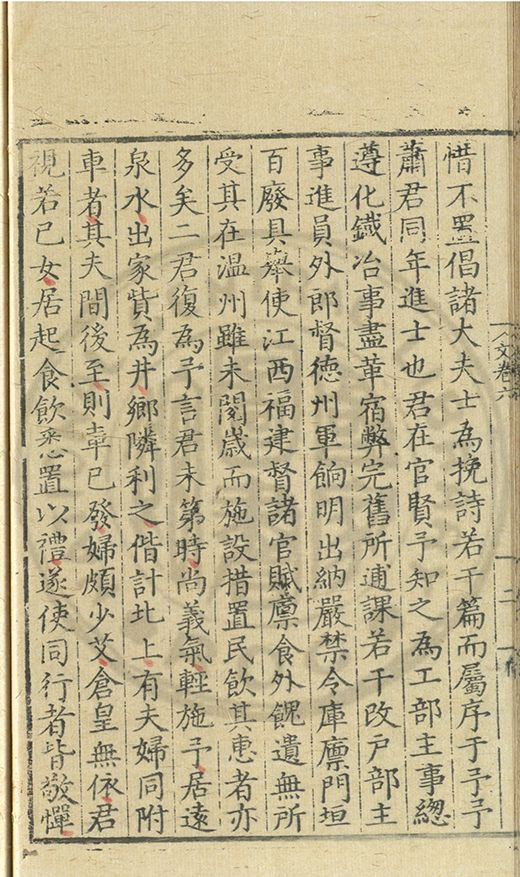 惜不置倡諸大夫士為挽詩若干篇而屬序于予予
蕭君同年進士也君在官賢予知之為工部主事總
遵化鐵冶事盡革宿弊完舊所逋課若干改戶部主
事進員外郎督德州軍餉明出納嚴禁令庫廪門垣
百廢具舉使江西福建督諸官賦廪食外餽遺無所
受其在温州雖未閱歲而施設措置民飲其惠者亦
多矣二君復為予言君未第時尚義氣輕施予居遠
泉水出家貲為井鄉隣利之偕計北上有夫婦同附
車者其夫間後至則車已發婦頗少艾倉皇無依君
視若已女居起食飲悉置以禮遂使同行者皆敬憚
文卷六
二